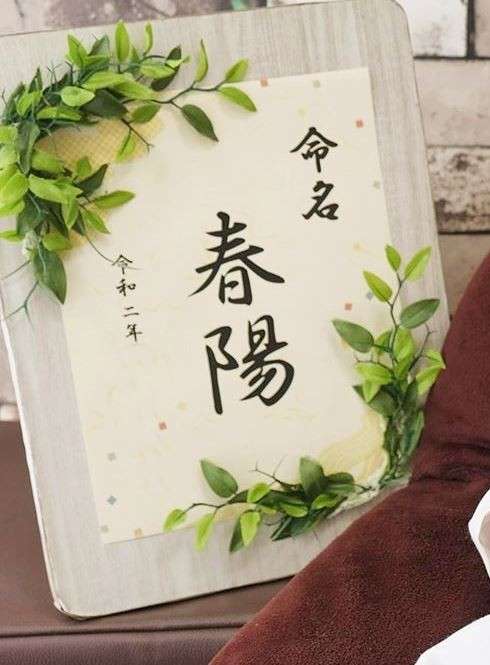 命名
春陽
令和二年